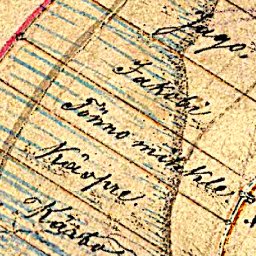 Jago.
Jakobi
Tönno mihkle
Käopre
Kärto